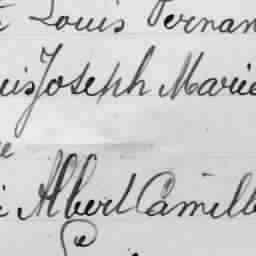 Louis Fernan
uis Joseph Marie
e
i Albert Camill
Le